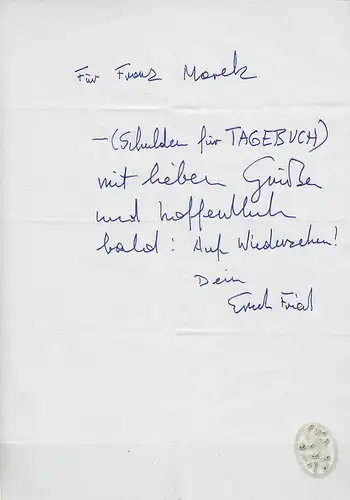 Für Franz Marek
– (Schulden für TAGEBUCH)
mit lieben Grüßen
und hoffentlich
bald: Auf Wiedersehen!
Dein
Erich Fried